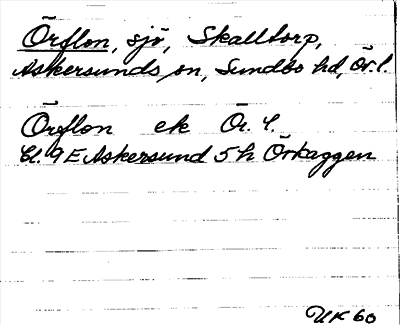 Örflon, sjö, Skalltorp,
Askersunds sn, Sundbo hd, Ör. l.
Örflon ek Ör. l.
bl. 9 E Askersund 5 h Örkaggen
UK 60